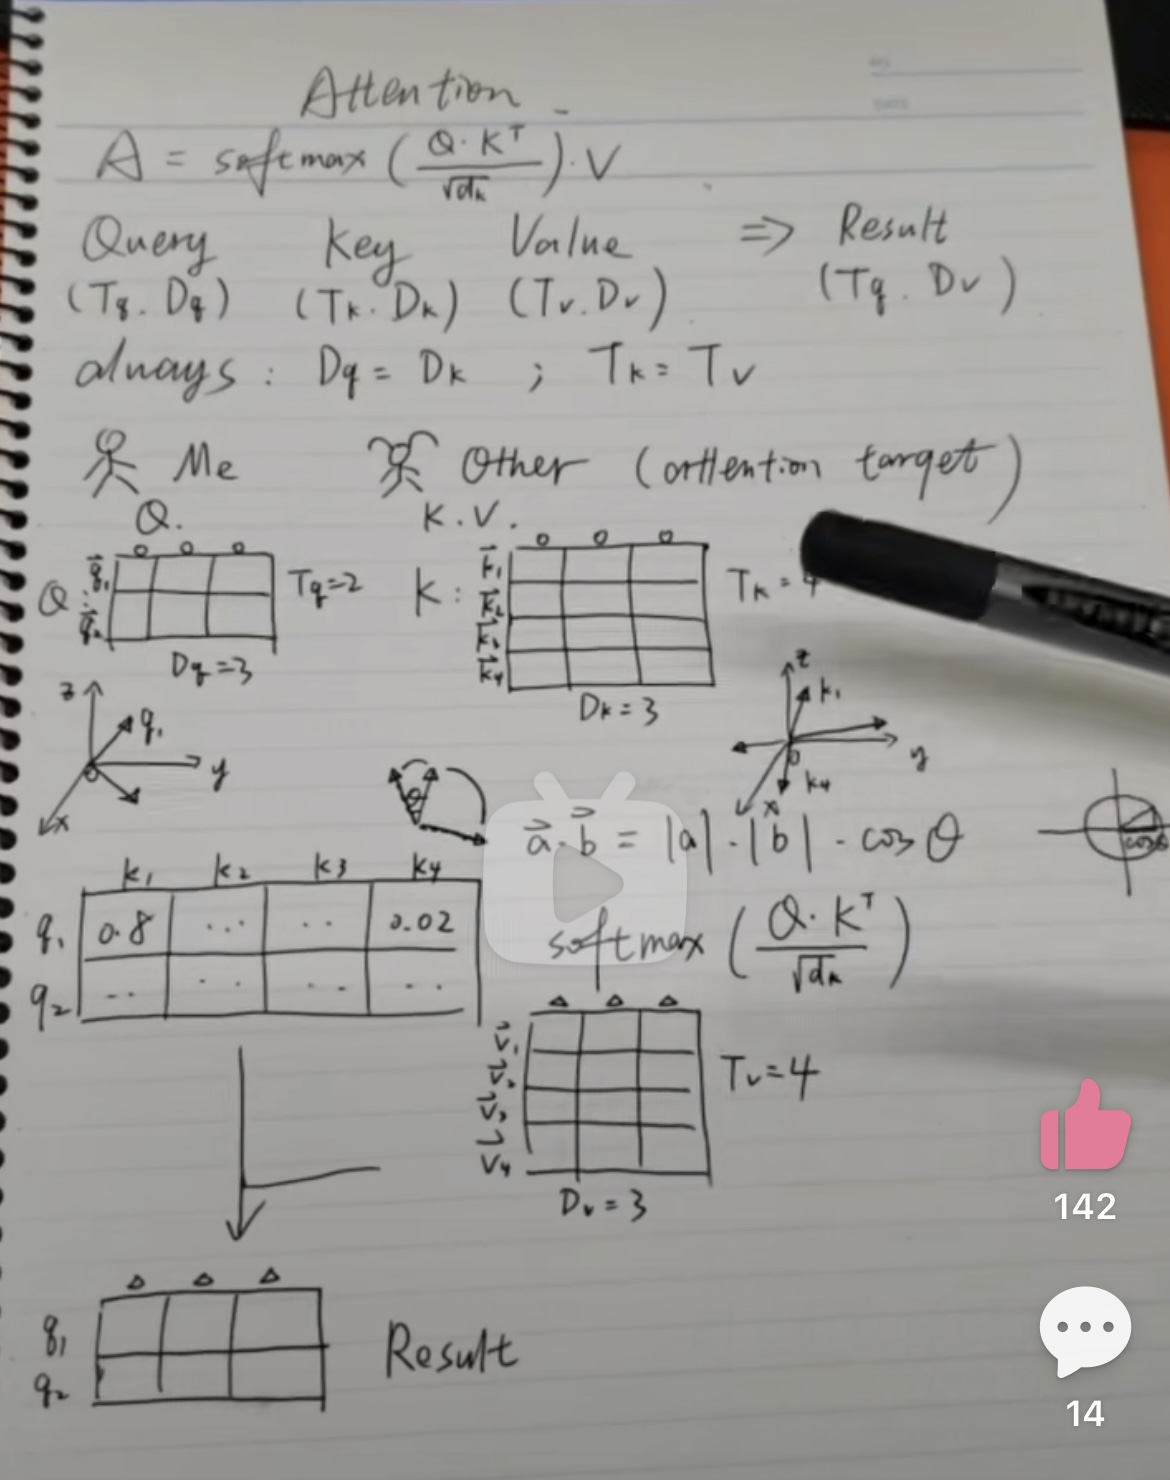 Attention
A = softmax (Q·Kᵀ/√dₖ)·V
Query Key Value => Result
(Tq. Dq) (Tk. Dk) (Tv. Dv) (Tq. Dv)
always: Dq = Dk ; Tk = Tv
Me Other (attention target)
Q. K.V.
Q: q₁ q₂ Tq=2 K: k₁ k₂ k₃ k₄ Tk = 4
Dq=3 Dk=3
z q₁ y x
z k₁ y k₄ x
θ
a·b = |a|·|b|·cosθ
cosθ
k₁ k₂ k₃ k₄
q₁ 0.8 ... .. 0.02
q₂ .. .. .. ..
softmax (Q·Kᵀ/√dₖ)
v₁ v₂ v₃ v₄ Tv=4
Dv=3
q₁ q₂ Result
142
14